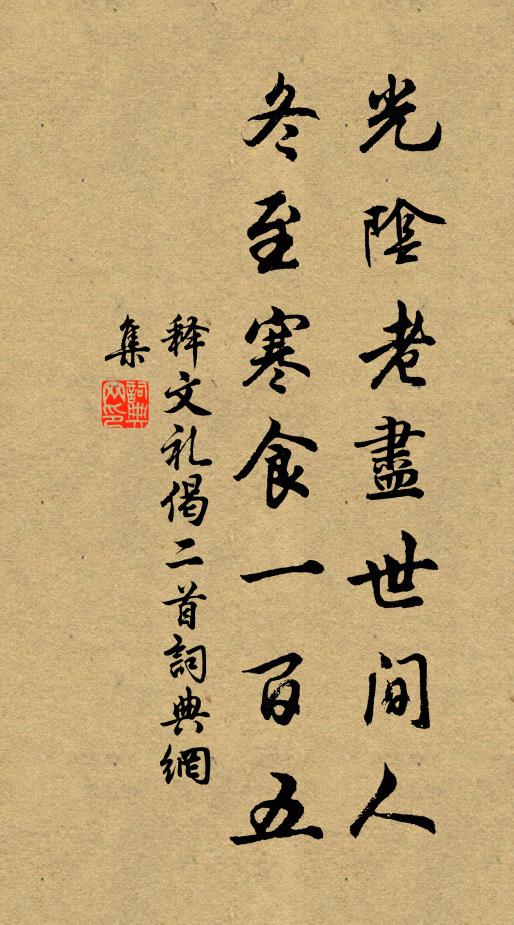 光陰老盡世間人
冬至寒食一百五
释文礼偈二首詞典網
集
詞典
网印